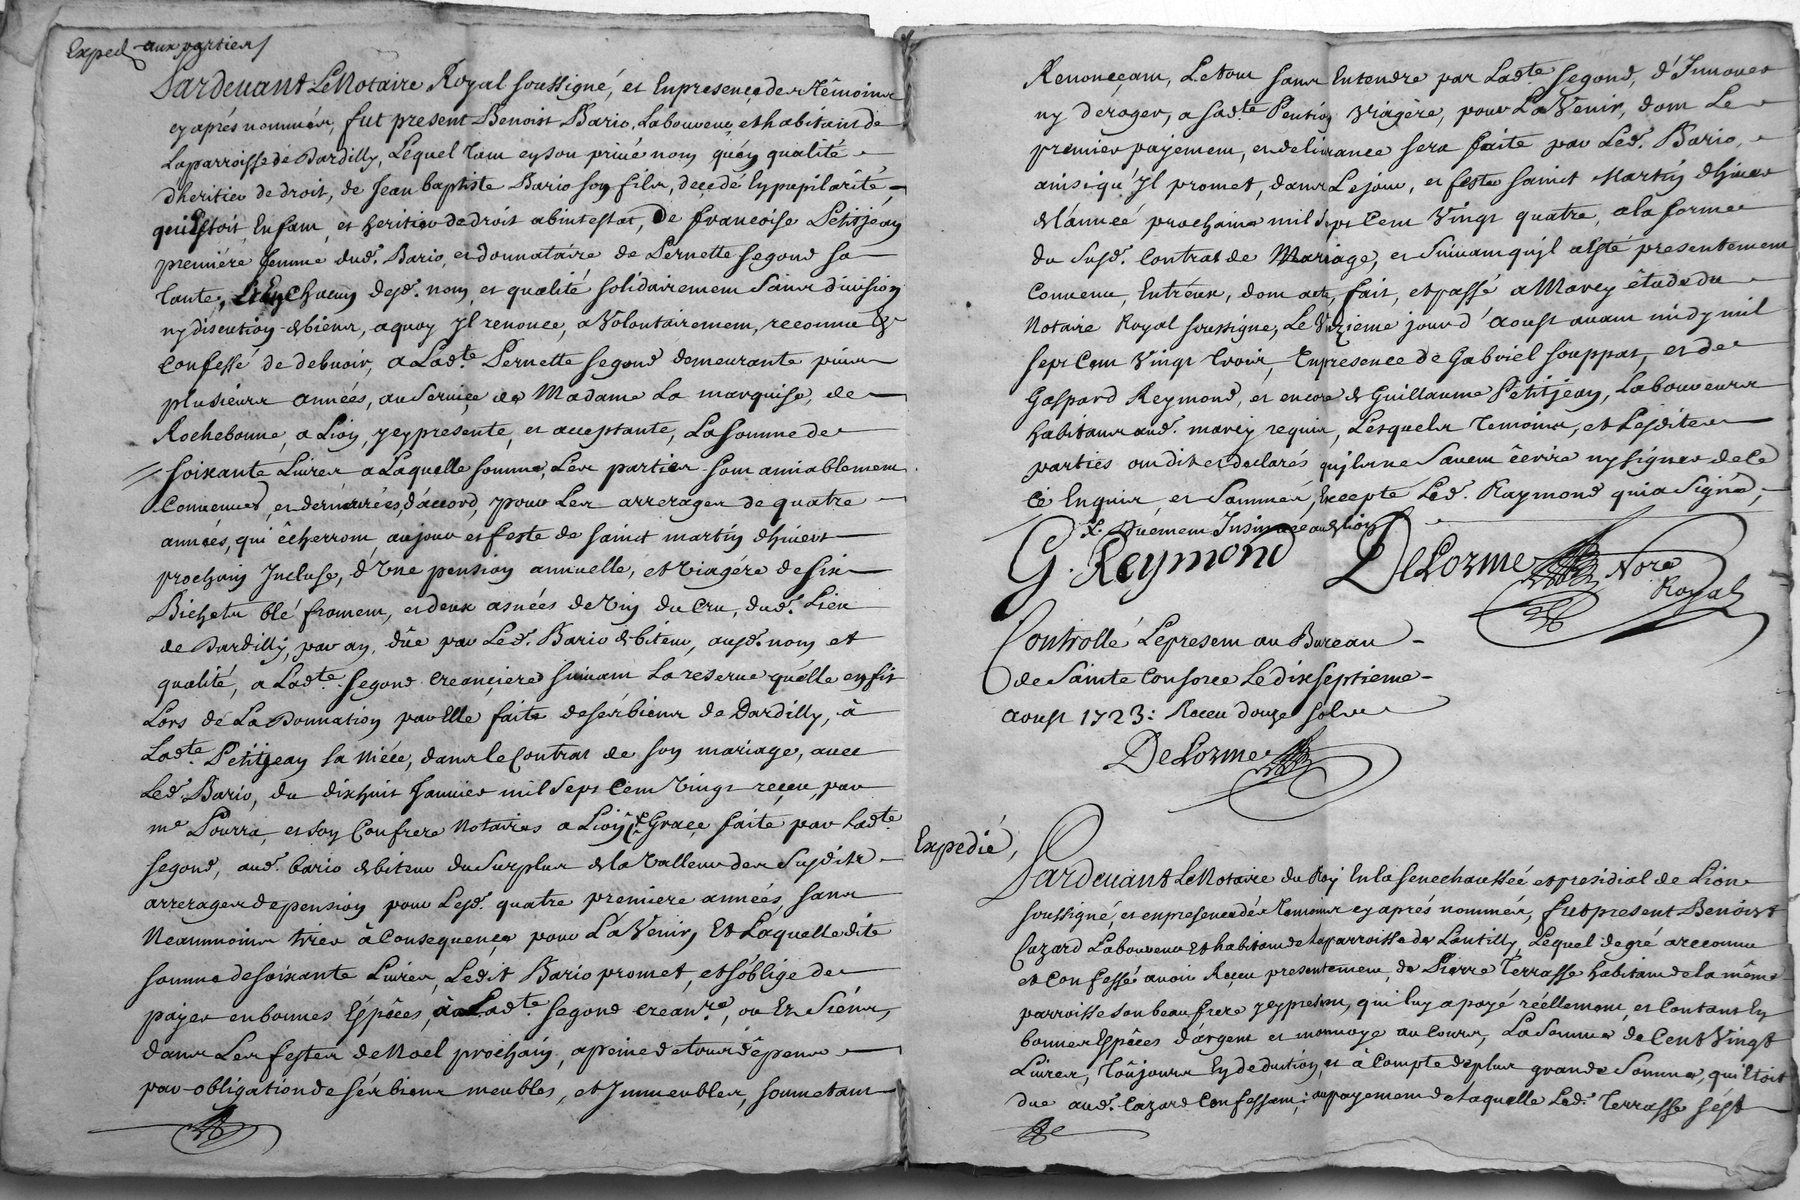 Exped aux parties
Pardevant Le Notaire Royal soussigné, et En presence des Témoins
cy aprés nommés, fut present Benoist Bario, Laboureur et habitant de
La parroisse de Dardilly, Lequel tant en son privé nom qu'en qualité
d'heritier de droit, de Jean baptiste Bario son fils, decedé En pupilarité,
qui Estoit Enfant, et heritier de droit abintestat, De francoise Petitjean
premiére femme dud. Bario, et donnataire de Pernette segond sa
tante, Et En Chacun desd. nom et qualité solidairement sans division
ny discution de biens, a quoy Il renonce, a Volontairement, reconnu &
Confessé de debvoir, a Ladte. Pernette segond demeurante puis
plusieurs années, au Service de Madame La marquise, de
Rochebonne, a Lion, y cy presente, et acceptante, La somme de
soixante Livres a Laquelle somme, Les parties sont amiablement
Convenues, et demeurées, d'accord, pour Les arrerages de quatre
années, qui êcherront, au jour et feste de sainct martin d'hivert
prochain Incluse, d'Une pension annuelle, et viagére de six
Bichets blé froment, et deux asnées de vin du Cru, dud. Lieu
de Dardilly, par an, dûe par Led. Bario debiteur, ausd. nom et
qualité, a Ladte. segond creanciere suivant La reserve quélle en fit
Lors de La Donnation par Elle faite de sés biens de Dardilly, à
Ladte. Petitjean sa niéce, dans le Contrat de son mariage, avec
Led. Bario, du dixhuit Janvier mil Sept Cent Vingt reçeu, par
me Pourra, et son Confrere Notaires a Lion, Grace faite par Ladte.
segond, aud. bario debiteur du Surplus de la valleur des Susdits
arrerages de pension pour Lesd. quatre premiere années, sans
Neanmoins tirer à Consequence pour L'a Venir, Et Laquelle dite
somme de soixante Livres, Ledit Bario promet, et s'oblige de
payer en bonnes Espêces, à Ladte. segond crean.re, ou Es Siéns,
dans Les festes de Noel prochain, a peine de tous dêpens
par obligation de sés biens meubles, et Immeubles, soumetant
Renonceant, Le tout sans Entendre par Ladte. segond, d'Innover
ny deroger, a sadte. Pention Viagére, pour L'a Venir, dont Le
premier payement, et delivrance sera faite par Led. Bario,
ainsi qu'Il promet, dans Le jour, et feste sainct Martin d'hiver
de l'année prochaine mil sept Cent Vingt quatre, a la forme
du Susd. Contrat de Mariage, et Suivant qu'il a Esté presentement
Convenu, Entréux, dont acte, fait, et passé a Marcy étude du
Notaire Royal soussigné, Le onzieme jour d'aoust avant midy mil
sept Cent Vingt trois, En presence de Gabriel souppat, et de
Gaspard Reymond, et encore de Guillaume Petitjean, Laboureurs
habitans aud. marcy requis, Lesquels Temoins, et Lesdites
parties ont dit et declarés qu'ils ne Savent êcrire ny signer de Ce
Cé Enquis, et Sommés, Excepté Led. Raymond qui a Signé,
G. Reymond DeLorme Nore Royal
Controllé Le present au Bureau
de Sainte Consorce Le dix septieme
aoust 1723: Receu douze sols
DeLorme
Expedié,
Pardevant Le Notaire du Roy En la senechaussée et presidial de Lion
soussigné, et en presence dés Temoins cy aprés nommés, fut present Benoist
Cazard Laboureur Et habitant de la parroisse de Lentilly, Lequel de gré a reconnu
et Confessé avoir Receu presentement de Pierre Terrasse habitant de la même
parroisse son beau frere y cy present, qui luy a payé réellement, et Contant En
bonnes Espêces d'argent et monnoye au cours, La Somme de Cent Vingt
Livres, Toûjours En deduction, et à Compte de plus grande Somme, qu'il toit
due aud. Cazard Confessant; au payement de laquelle Led. Terrasse s'ést